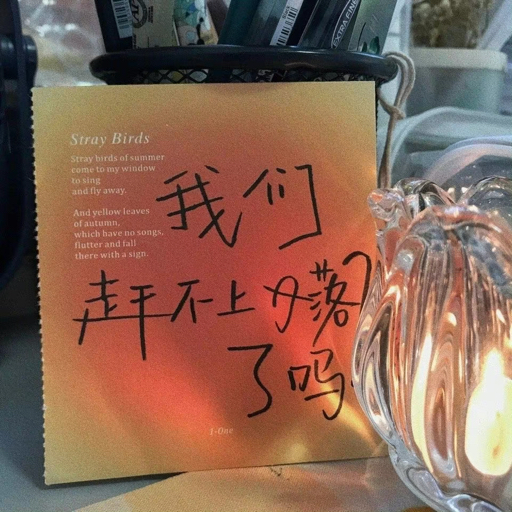 EXTRA FINE
Stray Birds
Stray birds of summer
come to my window
to sing
and fly away.
And yellow leaves
of autumn,
which have no songs,
flutter and fall
there with a sign.
我们
赶不上夕落
了吗